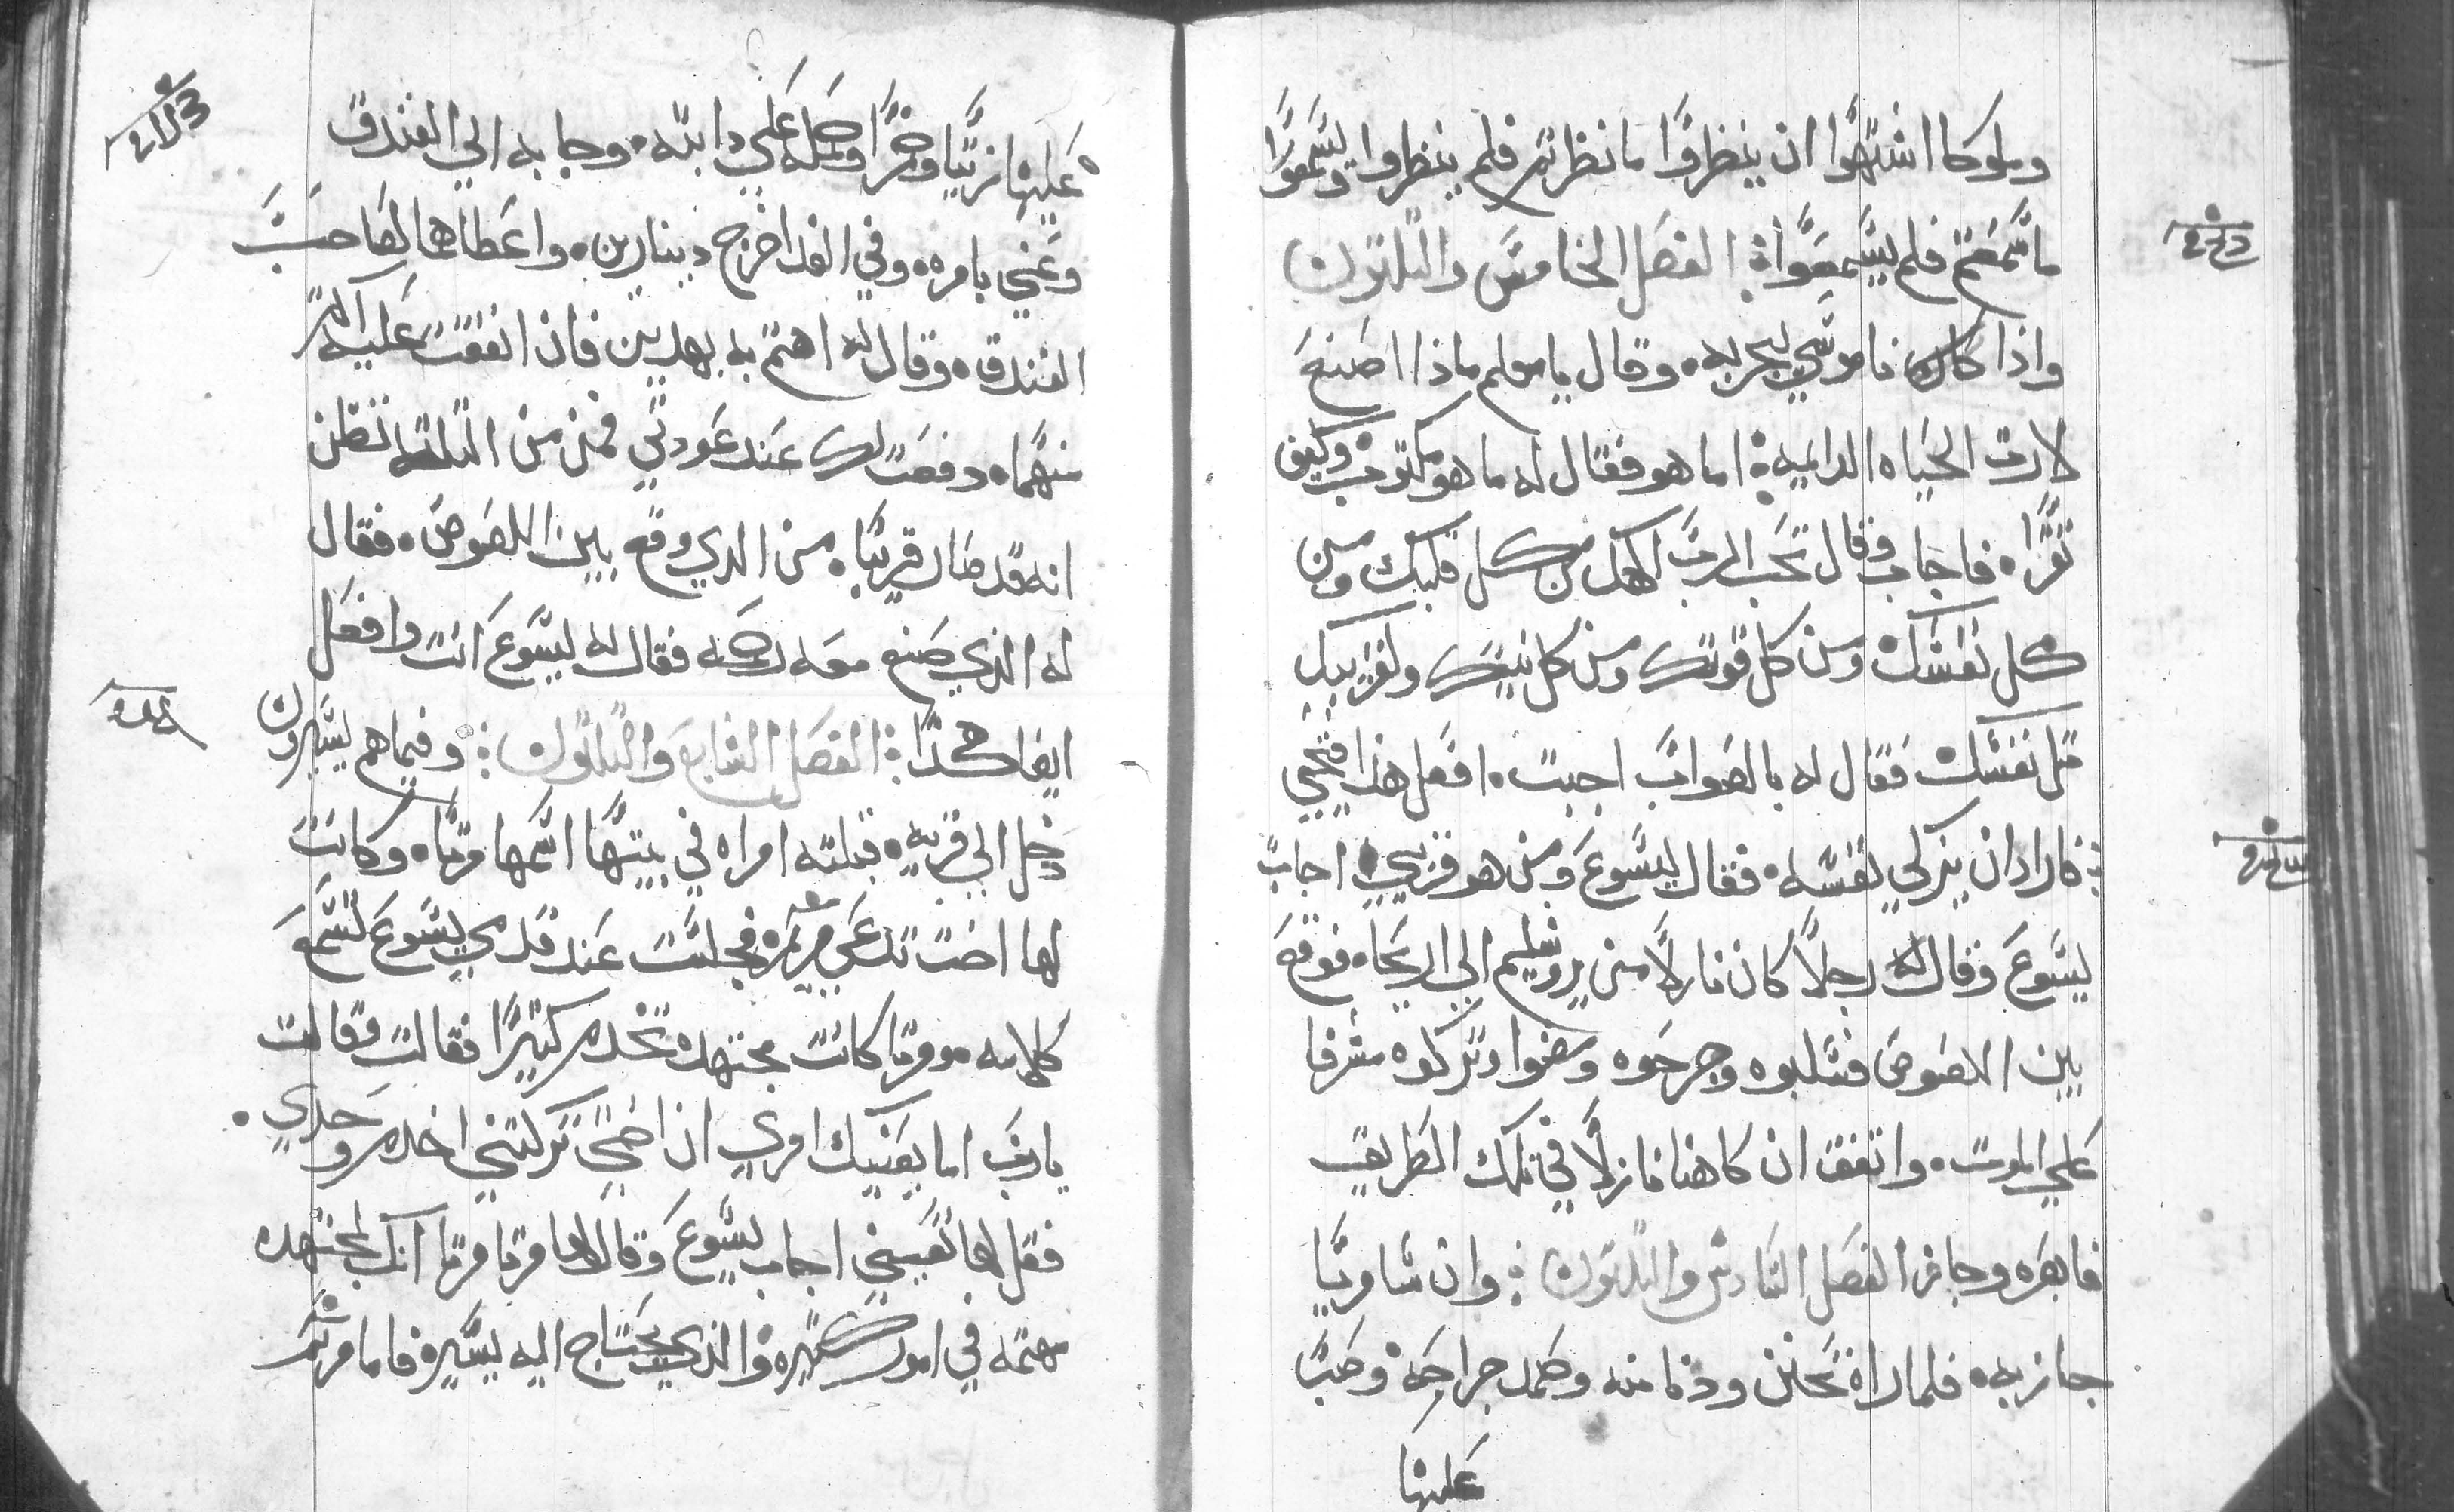 وملوكا اشتهوا ان ينظروا ما نظرتم فلم ينظروا ويسمعوا
ما سمعتم فلم يسمعوا ⁘ الفصل الخامس والثلثون
واذا كان ناموسي يجربه ۰ وقال يا معلم ماذا اصنع
لارث الحياه الدايمه ⁘ اما هو فقال له ما هو مكتوب وكيف
تقرا ۰ فاجاب وقال تحب الرب الهك من كل قلبك ومن
كل نفسك ومن كل قوتك ومن كل نيتك ولقريبك
مثل نفسك فقال له بالصواب اجبت ۰ افعل هذا فتحيي
فاراد ان يزكي نفسه ۰ فقال ليسوع ومن هو قريبي اجاب
يسوع وقال له رجلاً كان نازلاً من يروشليم الي اريحا ۰ فوقع
بين اللصوص فسلبوه وجرحوه ومضوا وتركوه مشرفا
علي الموت ۰ واتفق ان كاهنا نازلاً في تلك الطريق
فابصره وجاز الفصل السادس والثلثون ⁘ وان سامريا
جاز به ۰ فلما راه تحنن ودنا منه وضمد جراحه وصب
عليها
عليها زيتا وخمرا وحمله علي دابته ۰ وجا به الي الفندق
وعني بامره ۰ وفي الغد اخرج دينارين ۰ واعطاهما لصاحب
الفندق ۰ وقال له اهتم به بهدين فان انفقت عليه اكثر
منهما ۰ دفعت لك عند عودتي فمن من الثلثه تظن
انه قد صار قريبا ۰ من الدي وقع بين اللصوص ۰ فقال
له الذي صنع معه رحمه فقال له يسوع انت وافعل
ايضا هكدا ⁘ الفصل السابع والثلثون ⁘ وفيما هم يسيرون
دخل الي قريه ۰ قبلته امراه في بيتها اسمها مرتا ۰ وكانت
لها اخت تدعي مريم فجلست عند قدمي يسوع تسمع
كلامه ۰ ومرتا كانت مجتهده تخدم كثيرا فقالت فقالت
يا رب اما يعنيك امري ان اختي تركتني اخدم وحدي ۰
فقل لها تعينني اجاب يسوع وقال لها مرتا مرتا انك مجتهده
مهتمه في امور كثيره والذي يحتاج اليه يسير فاما مريم